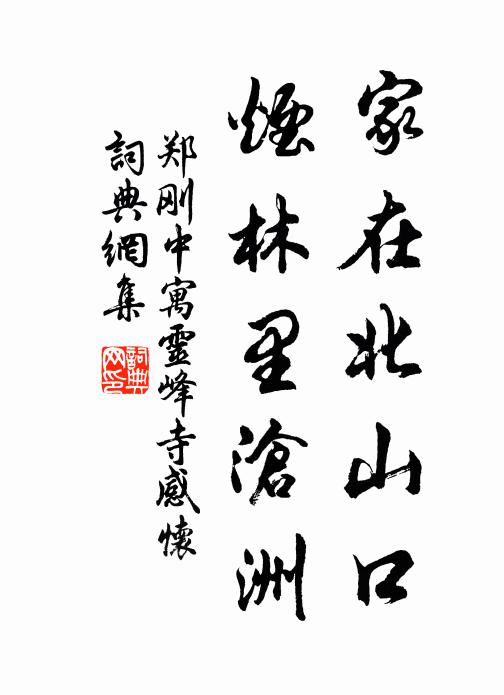 家在北山口
煙林里滄洲
郑刚中寓靈峰寺感懷
詞典網集
詞典网印